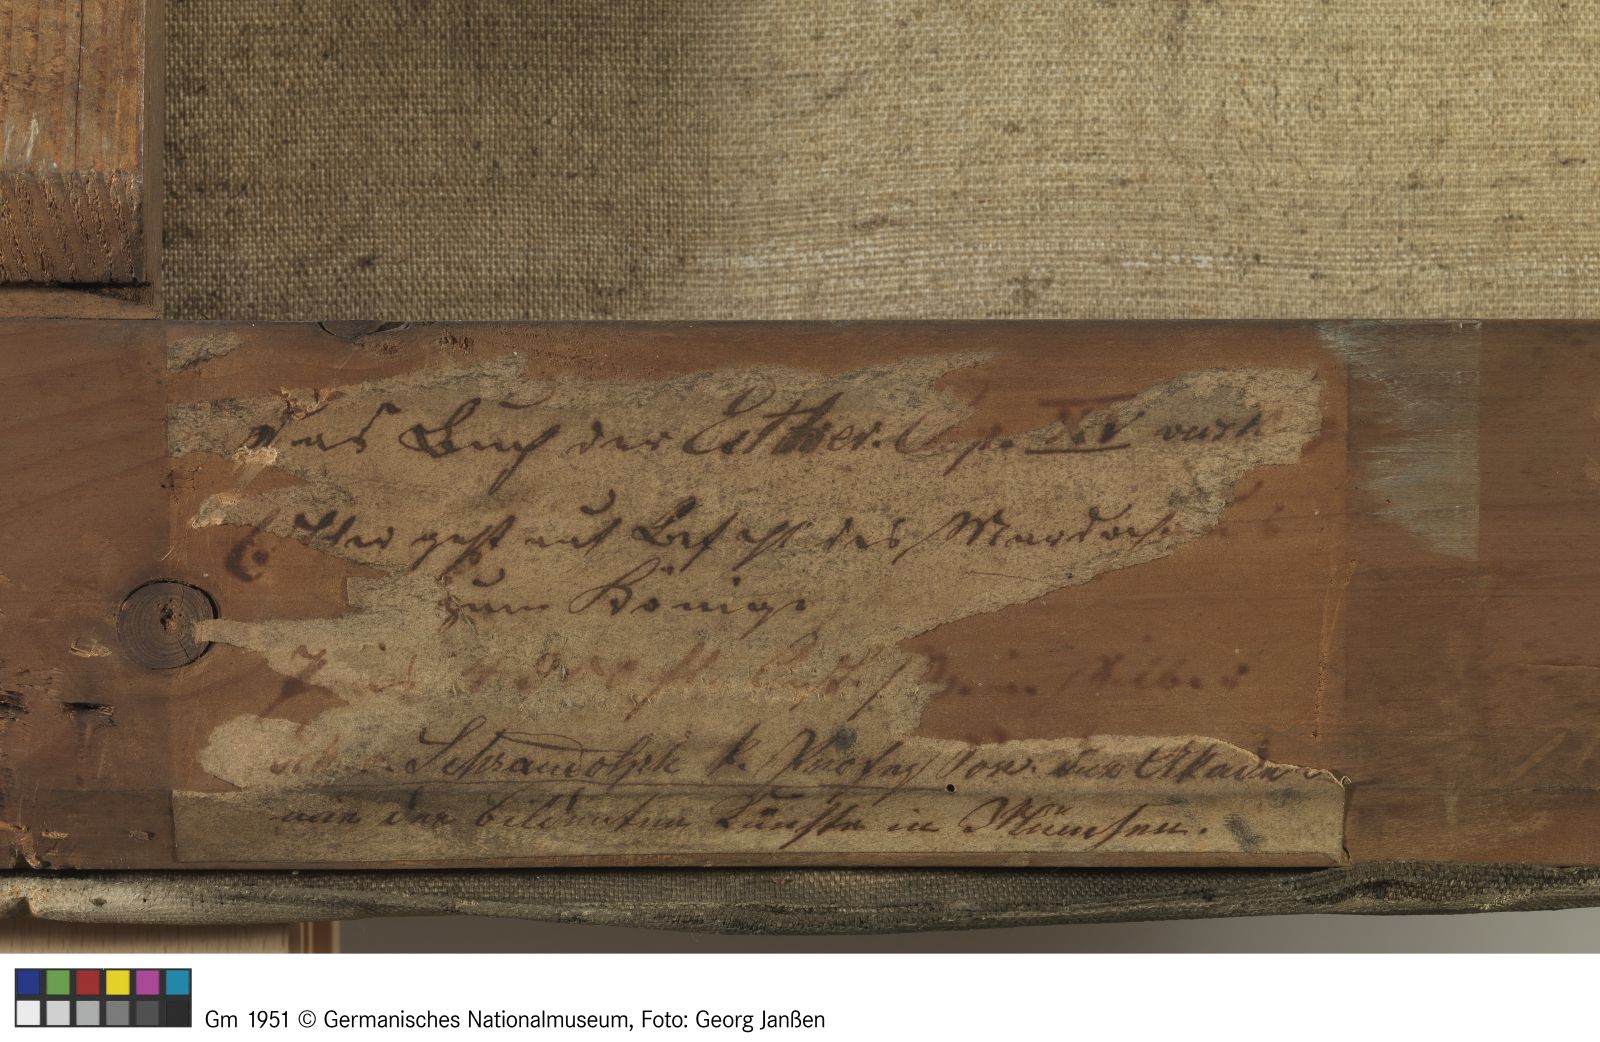 das Buch der Esther. Cap. XV
Esther geht auf Befehl des Mardoch
zum Könige
Schraudolph k. Professor. der Akade
mie der bildenden Künste in München.
Gm 1951 © Germanisches Nationalmuseum, Foto: Georg Janßen